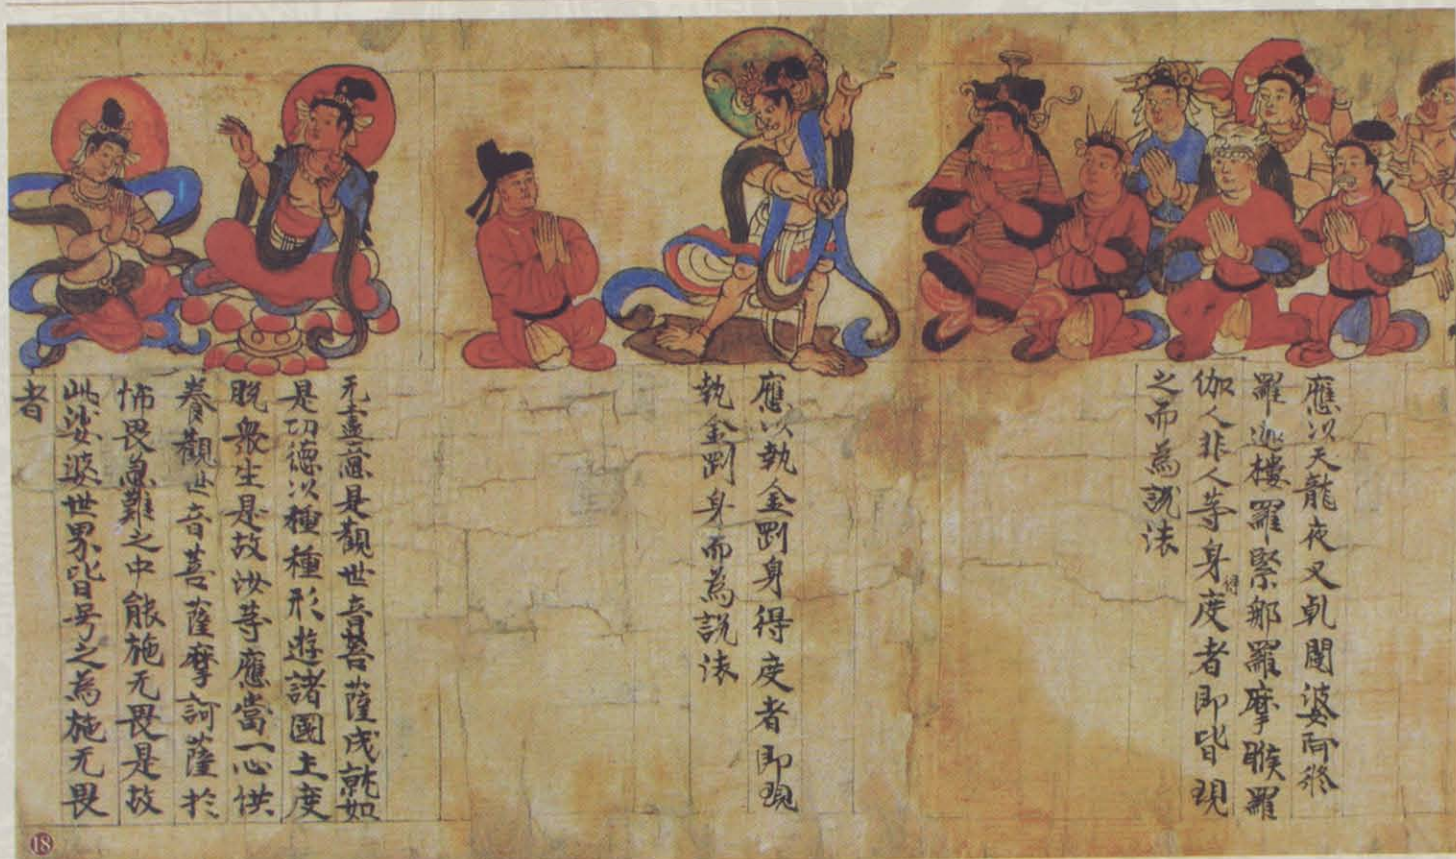 應以天龍夜叉乹闥婆阿脩
羅迦樓羅緊那羅摩睺羅
伽人非人等身得度者即皆現
之而為說法
應以執金剛身得度者即現
執金剛身而為說法
无盡意是觀世音菩薩成就如
是功德以種種形遊諸國土度
脫衆生是故汝等應當一心供
養觀世音菩薩摩訶薩於
怖畏急難之中能施无畏是故
此娑婆世界皆号之為施无畏
者
18